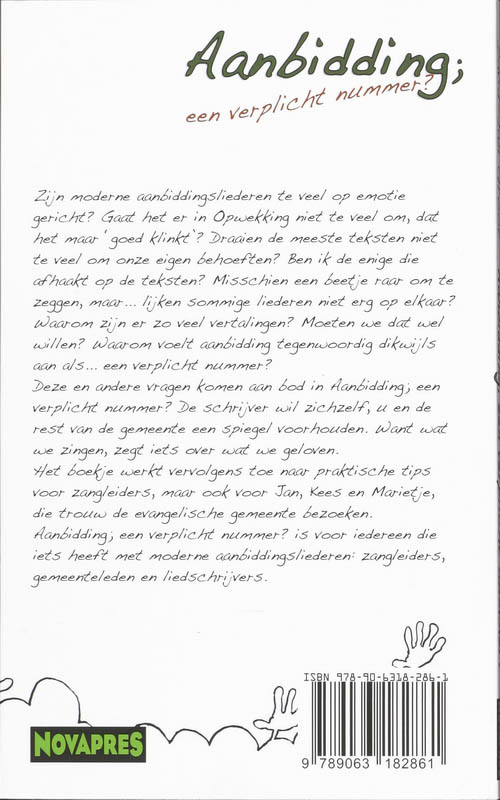 Aanbidding;
een verplicht nummer?
Zijn moderne aanbiddingsliederen te veel op emotie
gericht? Gaat het er in Opwekking niet te veel om, dat
het maar 'goed klinkt'? Draaien de meeste teksten niet
te veel om onze eigen behoeften? Ben ik de enige die
afhaakt op de teksten? Misschien een beetje raar om te
zeggen, maar... lijken sommige liederen niet erg op elkaar?
Waarom zijn er zo veel vertalingen? Moeten we dat wel
willen? Waarom voelt aanbidding tegenwoordig dikwijls
aan als... een verplicht nummer?
Deze en andere vragen komen aan bod in Aanbidding; een
verplicht nummer? De schrijver wil zichzelf, u en de
rest van de gemeente een spiegel voorhouden. Want wat
we zingen, zegt iets over wat we geloven.
Het boekje werkt vervolgens toe naar praktische tips
voor zangleiders, maar ook voor Jan, Kees en Marietje,
die trouw de evangelische gemeente bezoeken.
Aanbidding; een verplicht nummer? is voor iedereen die
iets heeft met moderne aanbiddingsliederen: zangleiders,
gemeenteleden en liedschrijvers.
ISBN 978-90-6318-286-1
NOVAPRES
9 789063 182861